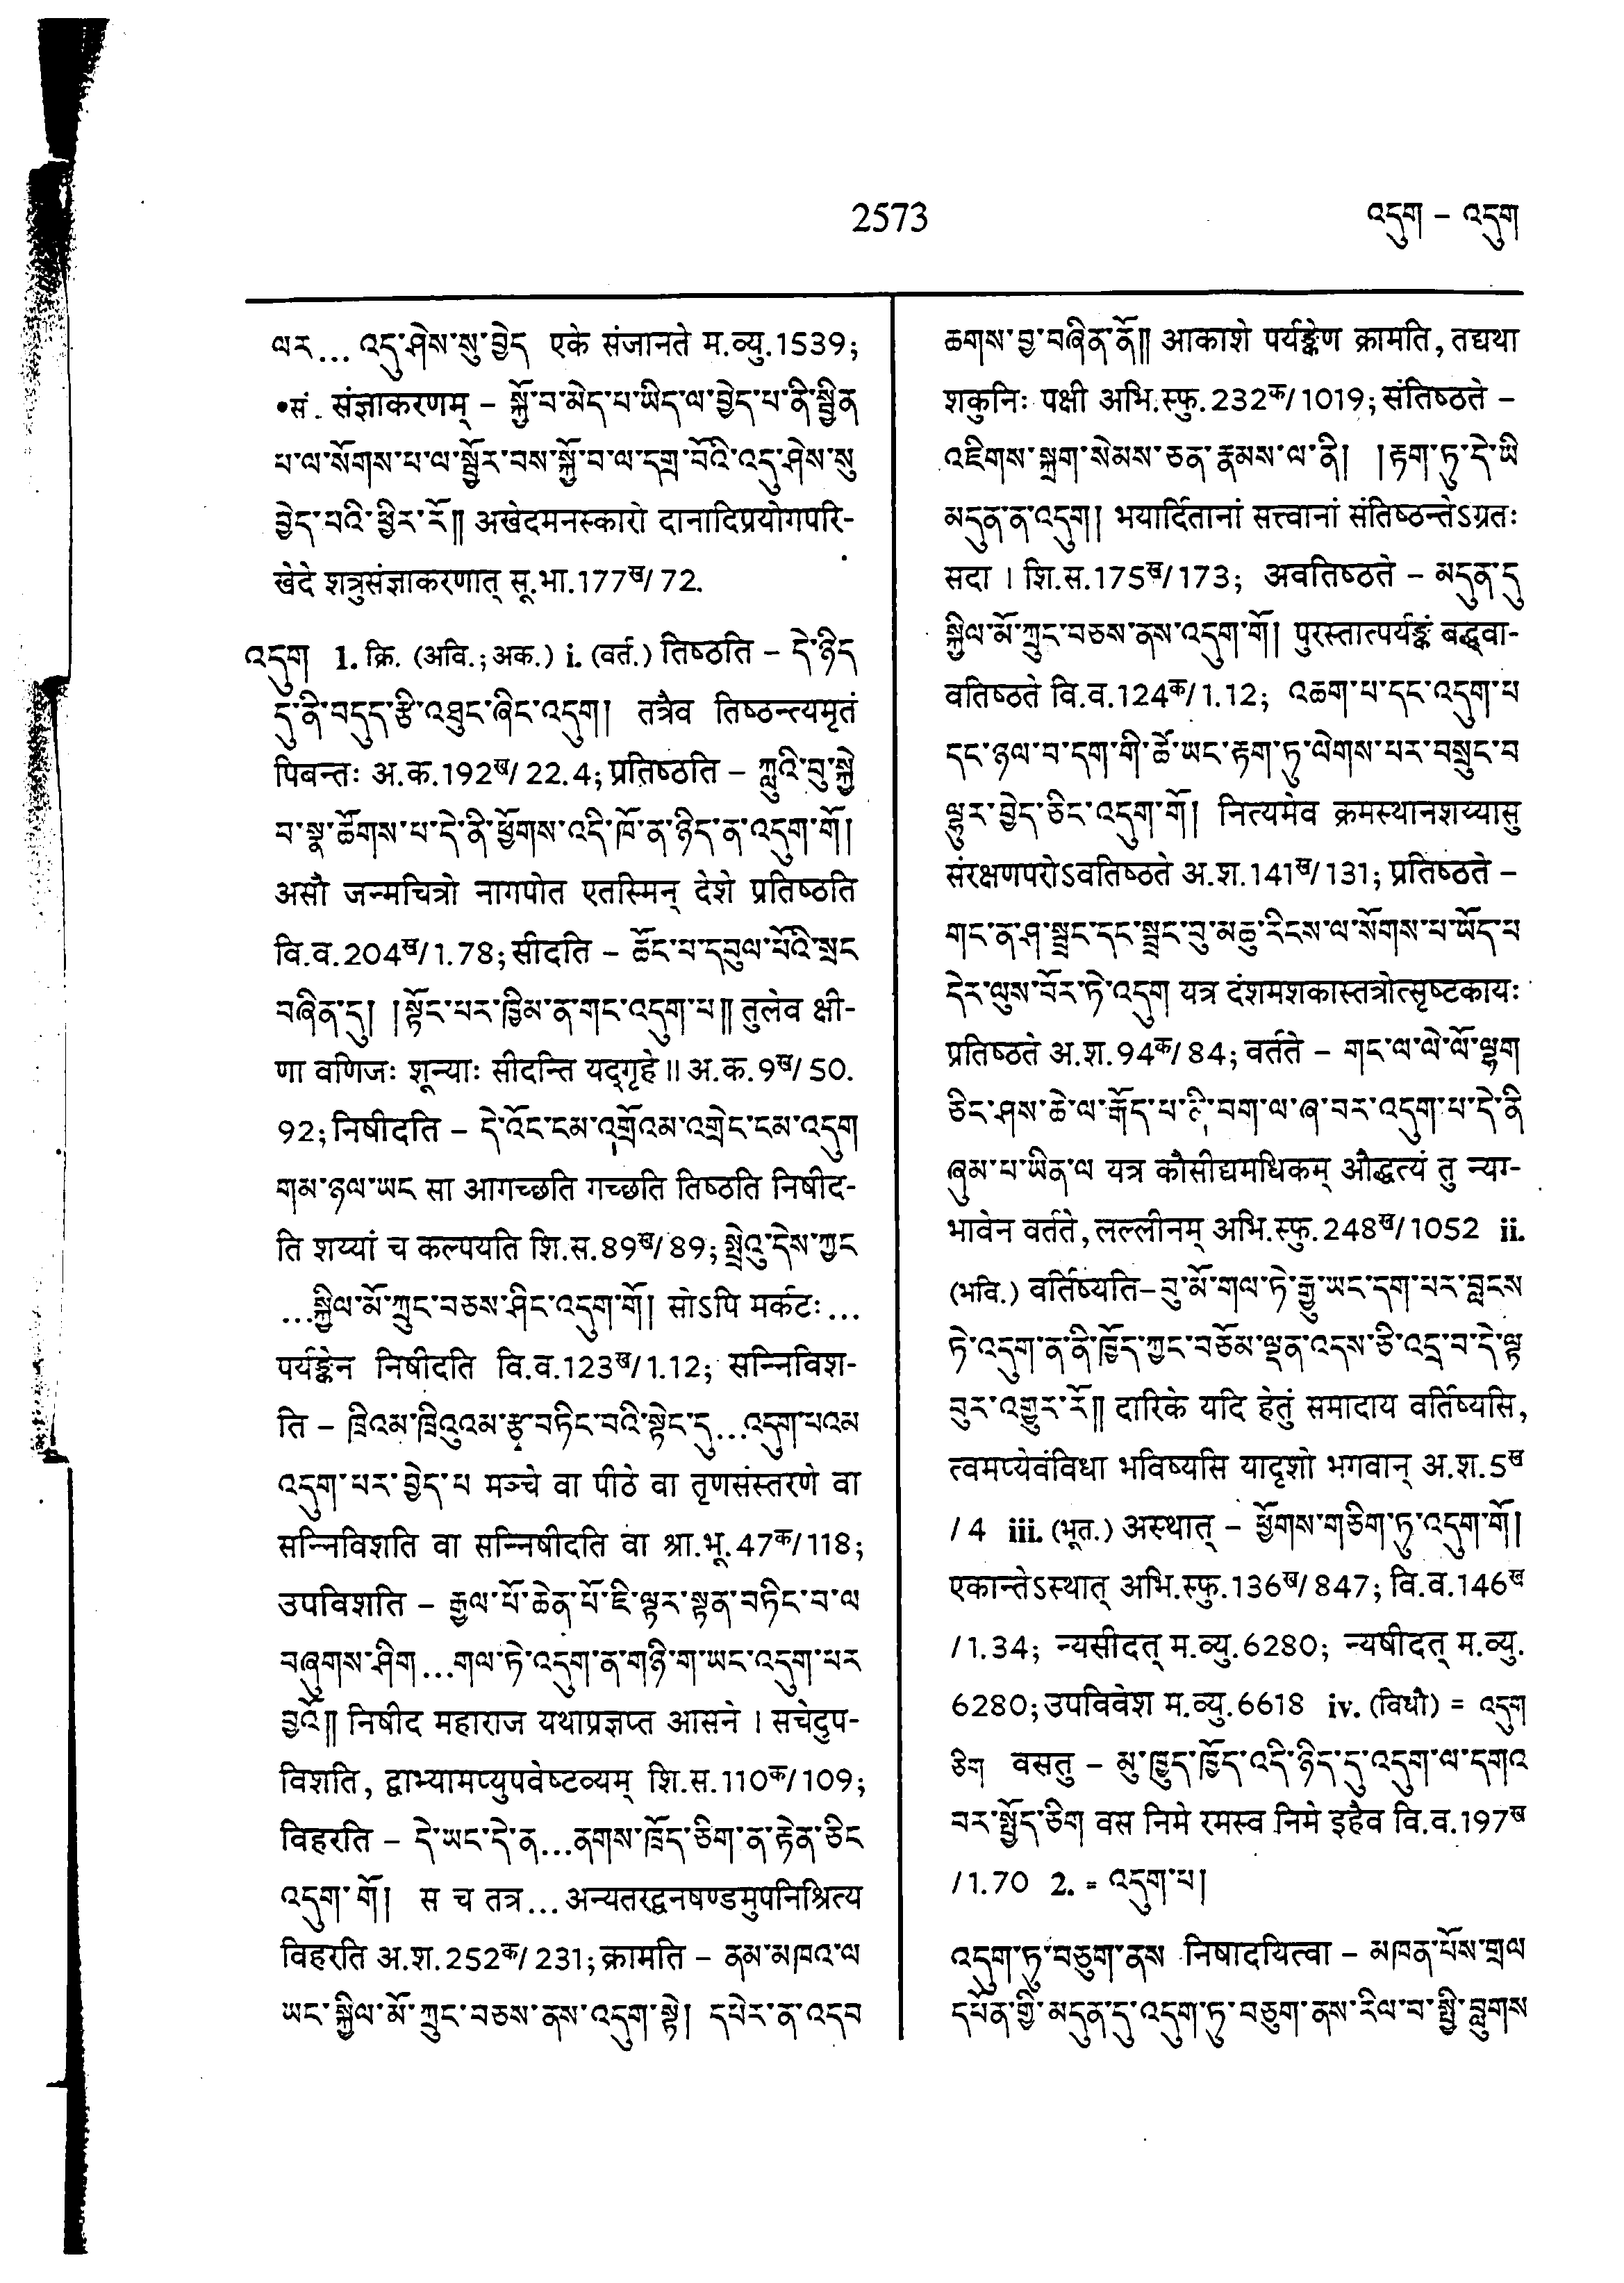 2573
འདུག – འདུག
ལར... འདུ་ཤེས་སུ་བྱེད एके संजानते म.व्यु.1539;
•सं. संज्ञाकरणम् – སྐྱོ་བ་མེད་པ་ཡིད་ལ་བྱེད་པ་ནི་སྦྱིན
པ་ལ་སོགས་པ་ལ་སྦྱོར་བས་སྐྱོ་བ་ལ་དགྲ་བོའི་འདུ་ཤེས་སུ
བྱེད་པའི་ཕྱིར་རོ༎ अखेदमनस्कारो दानादिप्रयोगपरि-
खेदे शत्रुसंज्ञाकरणात् सू.भा.177ख/72.
འདུག 1. क्रि. (अवि.; अक.) i. (वर्त.) तिष्ठति – དེ་ཉིད
དུ་ནི་བདུད་རྩི་འཐུང་ཞིང་འདུག། तत्रैव तिष्ठन्त्यमृतं
पिबन्तः अ.क.192ख/22.4; प्रतिष्ठति – ཀླུའི་བུ་སྐྱེ
བ་སྣ་ཚོགས་པ་དེ་ནི་ཕྱོགས་འདི་ཁོ་ན་ཉིད་ན་འདུག་གོ།
असौ जन्मचित्रो नागपोत एतस्मिन् देशे प्रतिष्ठति
वि.व.204ख/1.78; सीदति – ཚོང་བ་དབུལ་པོའི་སྲང
བཞིན་དུ། །སྟོང་པར་ཁྱིམ་ན་གང་འདུག་པ༎ तुलेव क्षी-
णा वणिजः शून्याः सीदन्ति यद्गृहे॥ अ.क.9ख/50.
92; निषीदति – དེ་འོང་ངམ་འགྲོའམ་འགྲེང་ངམ་འདུག
གམ་ཉལ་ཡང सा आगच्छति गच्छति तिष्ठति निषीद-
ति शय्यां च कल्पयति शि.स.89ख/89; སྤྲེའུ་དེས་ཀྱང
...སྐྱིལ་མོ་ཀྲུང་བཅས་ཤིང་འདུག་གོ། सोऽपि मर्कटः...
पर्यङ्केन निषीदति वि.व.123ख/1.12; सन्निविश-
ति – ཁྲིའམ་ཁྲིའུའམ་རྩྭ་བཏིང་བའི་སྟེང་དུ...འདུག་པའམ
འདུག་པར་བྱེད་པ मञ्चे वा पीठे वा तृणसंस्तरणे वा
सन्निविशति वा सन्निषीदति वा श्रा.भू.47क/118;
उपविशति – རྒྱལ་པོ་ཆེན་པོ་ཇི་ལྟར་སྟན་བཏིང་བ་ལ
བཞུགས་ཤིག...གལ་ཏེ་འདུག་ན་གཉི་ག་ཡང་འདུག་པར
བྱའོ༎ निषीद महाराज यथाप्रज्ञप्त आसने । सचेदुप-
विशति, द्वाभ्यामप्युपवेष्टव्यम् शि.स.110क/109;
विहरति – དེ་ཡང་དེ་ན...ནགས་ཁྲོད་ཅིག་ན་རྟེན་ཅིང
འདུག་གོ། स च तत्र...अन्यतरद्वनषण्डमुपनिश्रित्य
विहरति अ.श.252क/231; क्रामति – ནམ་མཁའ་ལ
ཡང་སྐྱིལ་མོ་ཀྲུང་བཅས་ནས་འདུག་སྟེ། དཔེར་ན་འདབ
ཆགས་བྱ་བཞིན་ནོ༎ आकाशे पर्यङ्केण क्रामति, तद्यथा
शकुनिः पक्षी अभि.स्फु.232क/1019; संतिष्ठते –
འཇིགས་སྐྲག་སེམས་ཅན་རྣམས་ལ་ནི། །རྟག་ཏུ་དེ་ཡི
མདུན་ན་འདུག། भयार्दितानां सत्त्वानां संतिष्ठन्तेऽग्रतः
सदा । शि.स.175ख/173; अवतिष्ठते – མདུན་དུ
སྐྱིལ་མོ་ཀྲུང་བཅས་ནས་འདུག་གོ། पुरस्तात्पर्यङ्कं बद्ध्वा-
वतिष्ठते वि.व.124क/1.12; འཆག་པ་དང་འདུག་པ
དང་ཉལ་བ་དག་གི་ཚོ་ཡང་རྟག་ཏུ་ལེགས་པར་བསྲུང་བ
ལྷུར་བྱེད་ཅིང་འདུག་གོ། नित्यमेव क्रमस्थानशय्यासु
संरक्षणपरोऽवतिष्ठते अ.श.141ख/131; प्रतिष्ठते –
གང་ན་ཤ་སྦྲང་དང་སྦྲང་བུ་མཆུ་རིངས་ལ་སོགས་པ་ཡོད་པ
དེར་ལུས་བོར་ཏེ་འདུག यत्र दंशमशकास्तत्रोत्सृष्टकायः
प्रतिष्ठते अ.श.94क/84; वर्तते – གང་ལ་ལེ་ལོ་ལྷག
ཅིང་ཤས་ཆེ་ལ་རྒོད་པ་ནི་བག་ལ་ཞ་བར་འདུག་པ་དེ་ནི
ཞུམ་པ་ཡིན་ལ यत्र कौसीद्यमधिकम् औद्धत्यं तु न्यग-
भावेन वर्तते, लल्लीनम् अभि.स्फु.248ख/1052 ii.
(भवि.) वर्तिष्यति– བུ་མོ་གལ་ཏེ་རྒྱུ་ཡང་དག་པར་བླངས
ཏེ་འདུག་ན་ནི་ཁྱོད་ཀྱང་བཅོམ་ལྡན་འདས་ཅི་འདྲ་བ་དེ་ལྟ
བུར་འགྱུར་རོ༎ दारिके यदि हेतुं समादाय वर्तिष्यसि,
त्वमप्येवंविधा भविष्यसि यादृशो भगवान् अ.श.5ख
/4 iii. (भूत.) अस्थात् – ཕྱོགས་གཅིག་ཏུ་འདུག་གོ།
एकान्तेऽस्थात् अभि.स्फु.136ख/847; वि.व.146ख
/1.34; न्यसीदत् म.व्यु.6280; न्यषीदत् म.व्यु.
6280; उपविवेश म.व्यु.6618 iv. (विधौ) = འདུག
ཅིག वसतु – མུ་ཁྱུད་ཁྱོད་འདི་ཉིད་དུ་འདུག་ལ་དགའ
བར་སྤྱོད་ཅིག वस निमे रमस्व निमे इहैव वि.व.197ख
/1.70 2. = འདུག་པ།
འདུག་ཏུ་བཅུག་ནས निषादयित्वा – མཁན་པོས་གྲལ
དཔོན་གྱི་མདུན་དུ་འདུག་ཏུ་བཅུག་ནས་རིལ་བ་སྤྱི་བླུགས